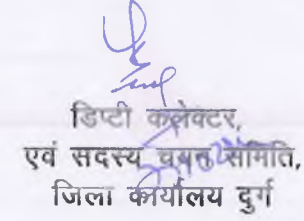 डिप्टी कलेक्टर,
एवं सदस्य चयन समिति,
जिला कार्यालय दुर्ग